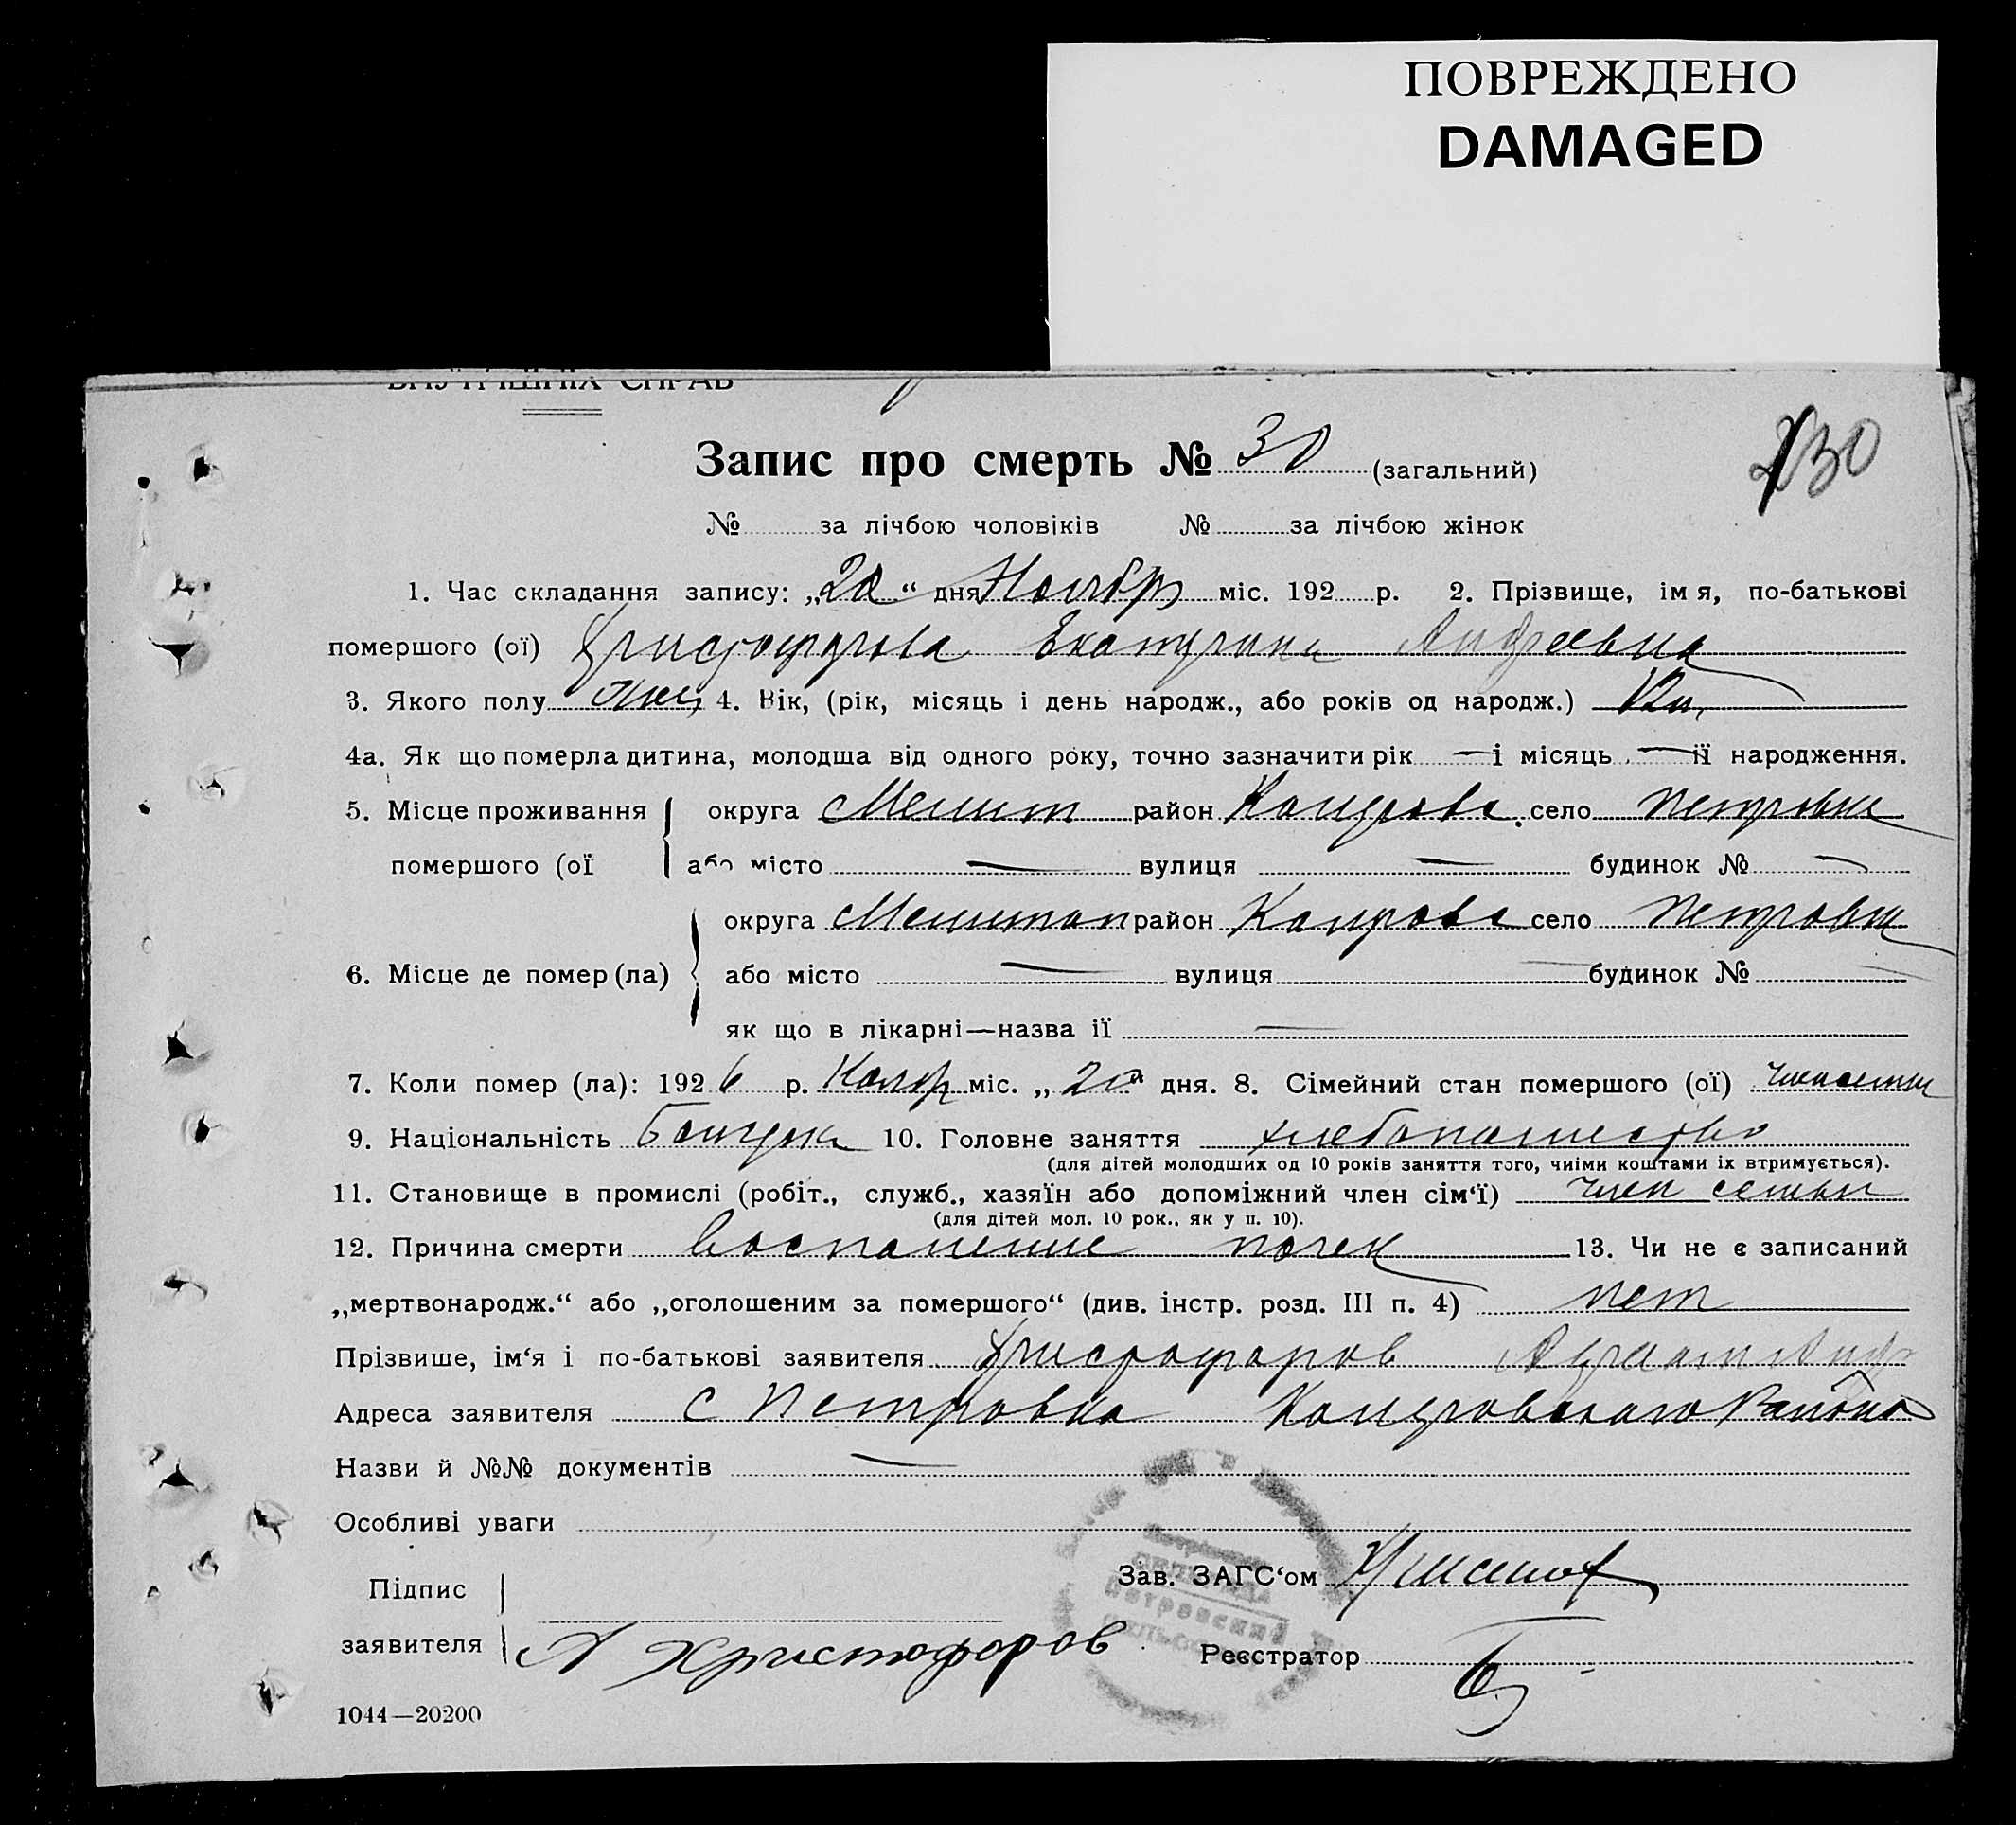 ПОВРЕЖДЕНО
DAMAGED
ВНУТРІШНІХ СПРАВ
Запис про смерть № 30 (загальний)
30
№ за лічбою чоловіків № за лічбою жінок
1. Час складання запису: „20“ дня Ноябр міс. 192 р. 2. Прізвище, імя, по-батькові
помершого (ої) Христофорова Екатерина Андреевна
3. Якого полу жен 4. Вік, (рік, місяць і день народж., або років од народж.)
4а. Як що померла дитина, молодша від одного року, точно зазначити рік — і місяць — її народження.
5. Місце проживання округа Мелит район село Петровка
помершого (ої або місто — вулиця — будинок № —
округа Мелитоп район село Петровка
6. Місце де помер (ла) або місто — вулиця — будинок № —
як що в лікарні—назва її —
7. Коли помер (ла): 1926 р. Ноябр міс. „20“ дня. 8. Сімейний стан помершого (ої) член семьи
9. Національність 10. Головне заняття хлебопашество
(для дітей молодших од 10 років заняття того, чиїми коштами їх втримується).
11. Становище в промислі (робіт., служб., хазяїн або допоміжний член сім‘ї) член семьи
(для дітей мол. 10 рок., як у п. 10).
12. Причина смерти воспаление почек 13. Чи не є записаний
„мертвонародж.“ або „оголошеним за помершого“ (див. інстр. розд. III п. 4) нет
Прізвише, ім‘я і по-батькові заявителя Христофоров
Адреса заявителя с Петровка Района
Назви й №№ документів —
Особливі уваги
Зав. ЗАГС‘ом
Підпис
заявителя А Христофоров
Петровский
Реєстратор
1044—20200